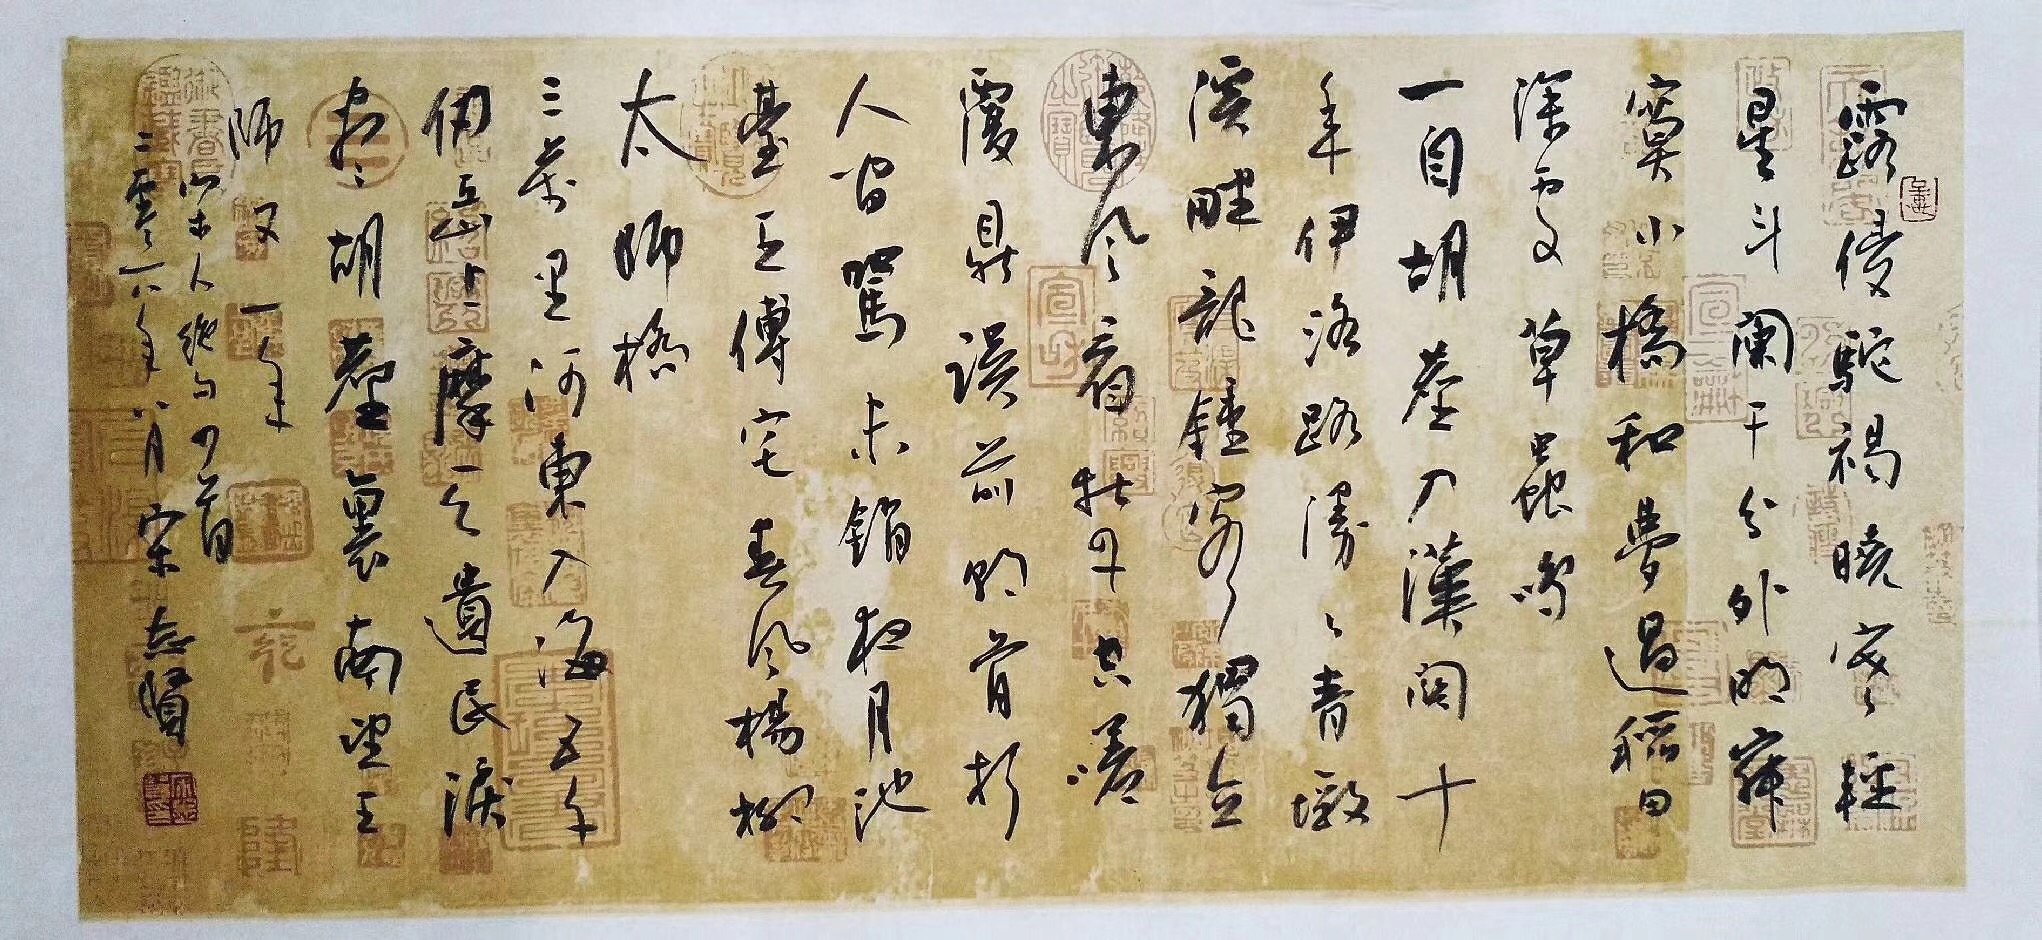 露侵駝褐曉寒輕
星斗闌干分外明寂
寞小橋和夢過稻田
深處草蟲鳴
一自胡塵入漢關十
年伊洛路漫漫青墩
溪畔龍鍾客獨立
東風看牡丹共嗟
覆鼎誤前朝骨朽
人間罵未銷夜月池
臺王傅宅春風楊柳
太師橋
三萬里河東入海五千
仞岳上摩天遺民淚
盡胡塵裏南望王
師又一年
宋人絕句四首
二零一八年八月宋志賢